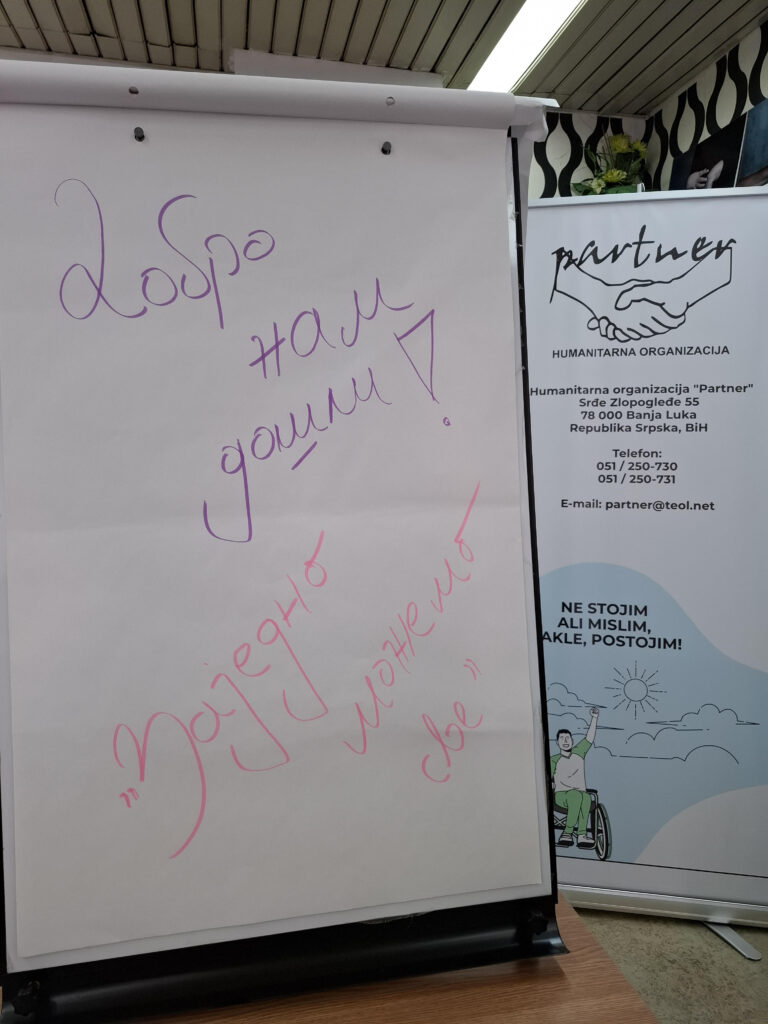 Добро
нам
дошли!
„Заједно
можемо
све”
partner
HUMANITARNA ORGANIZACIJA
Humanitarna organizacija "Partner"
Srđe Zlopogleđe 55
78 000 Banja Luka
Republika Srpska, BiH
Telefon:
051 / 250-730
051 / 250-731
E-mail: partner@teol.net
NE STOJIM
ALI MISLIM,
AKLE, POSTOJIM!